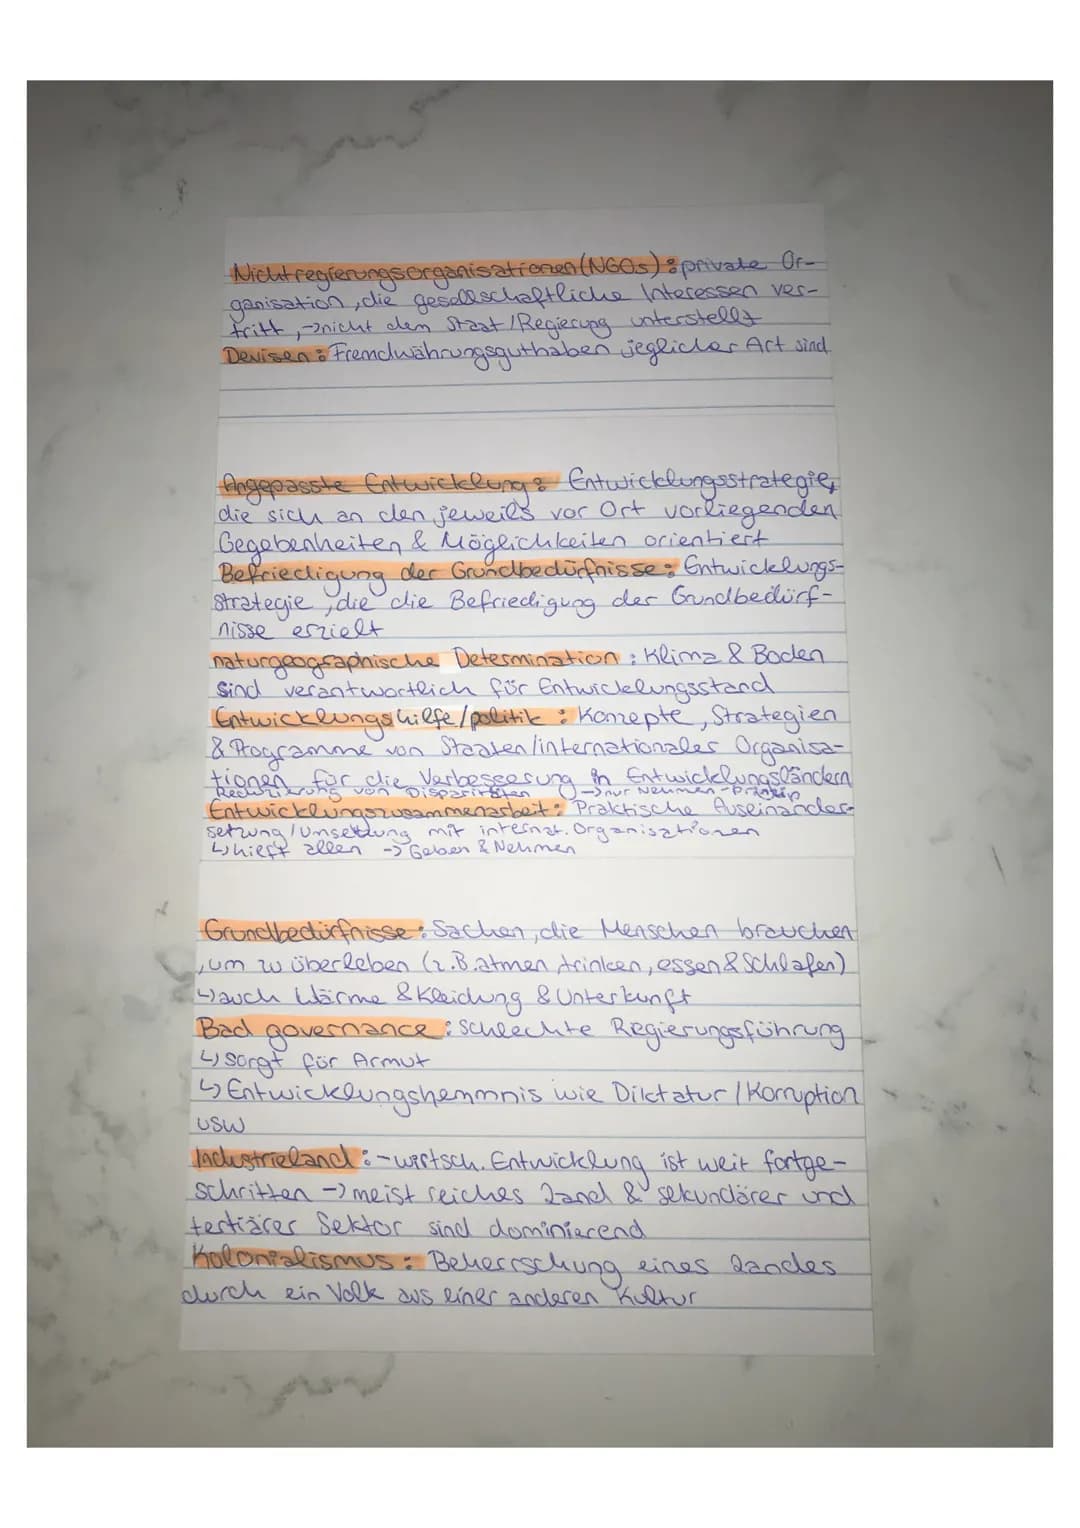 Nichtregierungsorganisationen (NGOs): private Or-
ganisation, die gesellschaftliche Interessen ver-
tritt, → nicht dem Staat/Regierung unterstellt
Devisen: Fremdwährungsguthaben jeglicher Art sind
Angepasste Entwicklung: Entwicklungsstrategie,
die sich an den jeweils vor Ort vorliegenden
Gegebenheiten & Möglichkeiten orientiert
Befriedigung der Grundbedürfnisse: Entwicklungs-
strategie, die die Befriedigung der Grundbedürf-
nisse erzielt
naturgeographische Determination: Klima & Boden
sind verantwortlich für Entwicklungsstand
Entwicklungshilfe/politik: Konzepte, Strategien
& Programme von Staaten/internationaler Organisa-
tionen für die Verbesserung in Entwicklungsländern
Reduzierung von Disparitäten → nur Nehmen-Prinzip
Entwicklungszusammenarbeit: Praktische Auseinander-
setzung/Umsetzung mit internat. Organisationen
↳ hilft allen → Geben & Nehmen
Grundbedürfnisse: Sachen, die Menschen brauchen
, um zu überleben (z.B. atmen, trinken, essen & schlafen)
↳ auch Wärme & Kleidung & Unterkunft
Bad governance: schlechte Regierungsführung
↳ sorgt für Armut
↳ Entwicklungshemmnis wie Diktatur/Korruption
usw
Industrieland: - wirtsch. Entwicklung ist weit fortge-
schritten → meist reiches Land & sekundärer und
tertiärer Sektor sind dominierend
Kolonialismus: Beherrschung eines Landes
durch ein Volk aus einer anderen Kultur